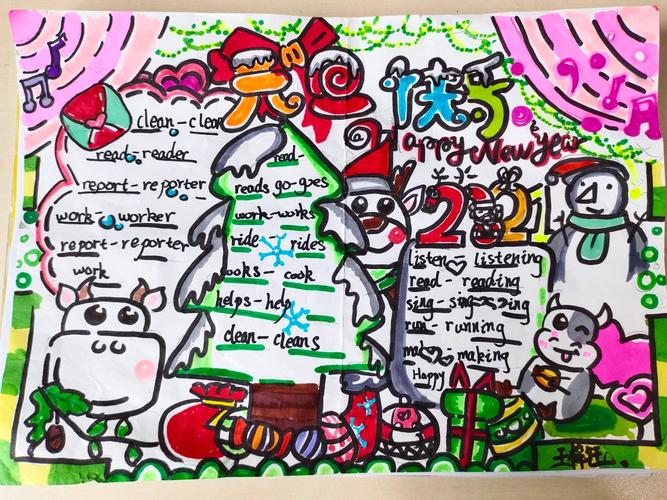 元旦快乐
Happy New Year
2021
clean - clean
read - reader
report - reporter
work - worker
report - reporter
work
read -
reads go-goes
work-works
ride rides
cooks - cook
helps - help
clean - cleans
listen listening
read - reading
sing - singing
run - running
making
Happy